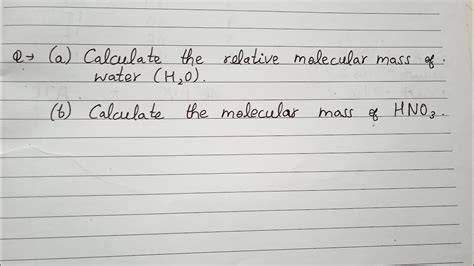 Q→ (a) Calculate the relative molecular mass of
water (H₂O).
(b) Calculate the molecular mass of HNO₃.